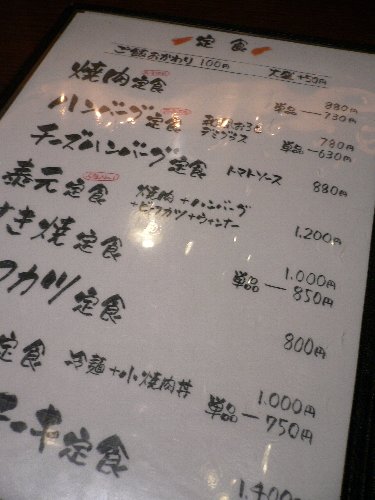 定食
ご飯おかわり 100円 大盛 +50円
焼肉定食 880円
単品—730円
ハンバーグ定食 780円
デミグラス 単品—630円
チーズハンバーグ定食 トマトソース 880円
泰元定食 焼肉+ハンバーグ
+ビーフカツ+ウィンナー 1,200円
すき焼定食 1,000円
単品—850円
フカツ定食 800円
定食 冷麺+小焼肉丼 1,000円
単品—750円
ーキ定食 1,400円